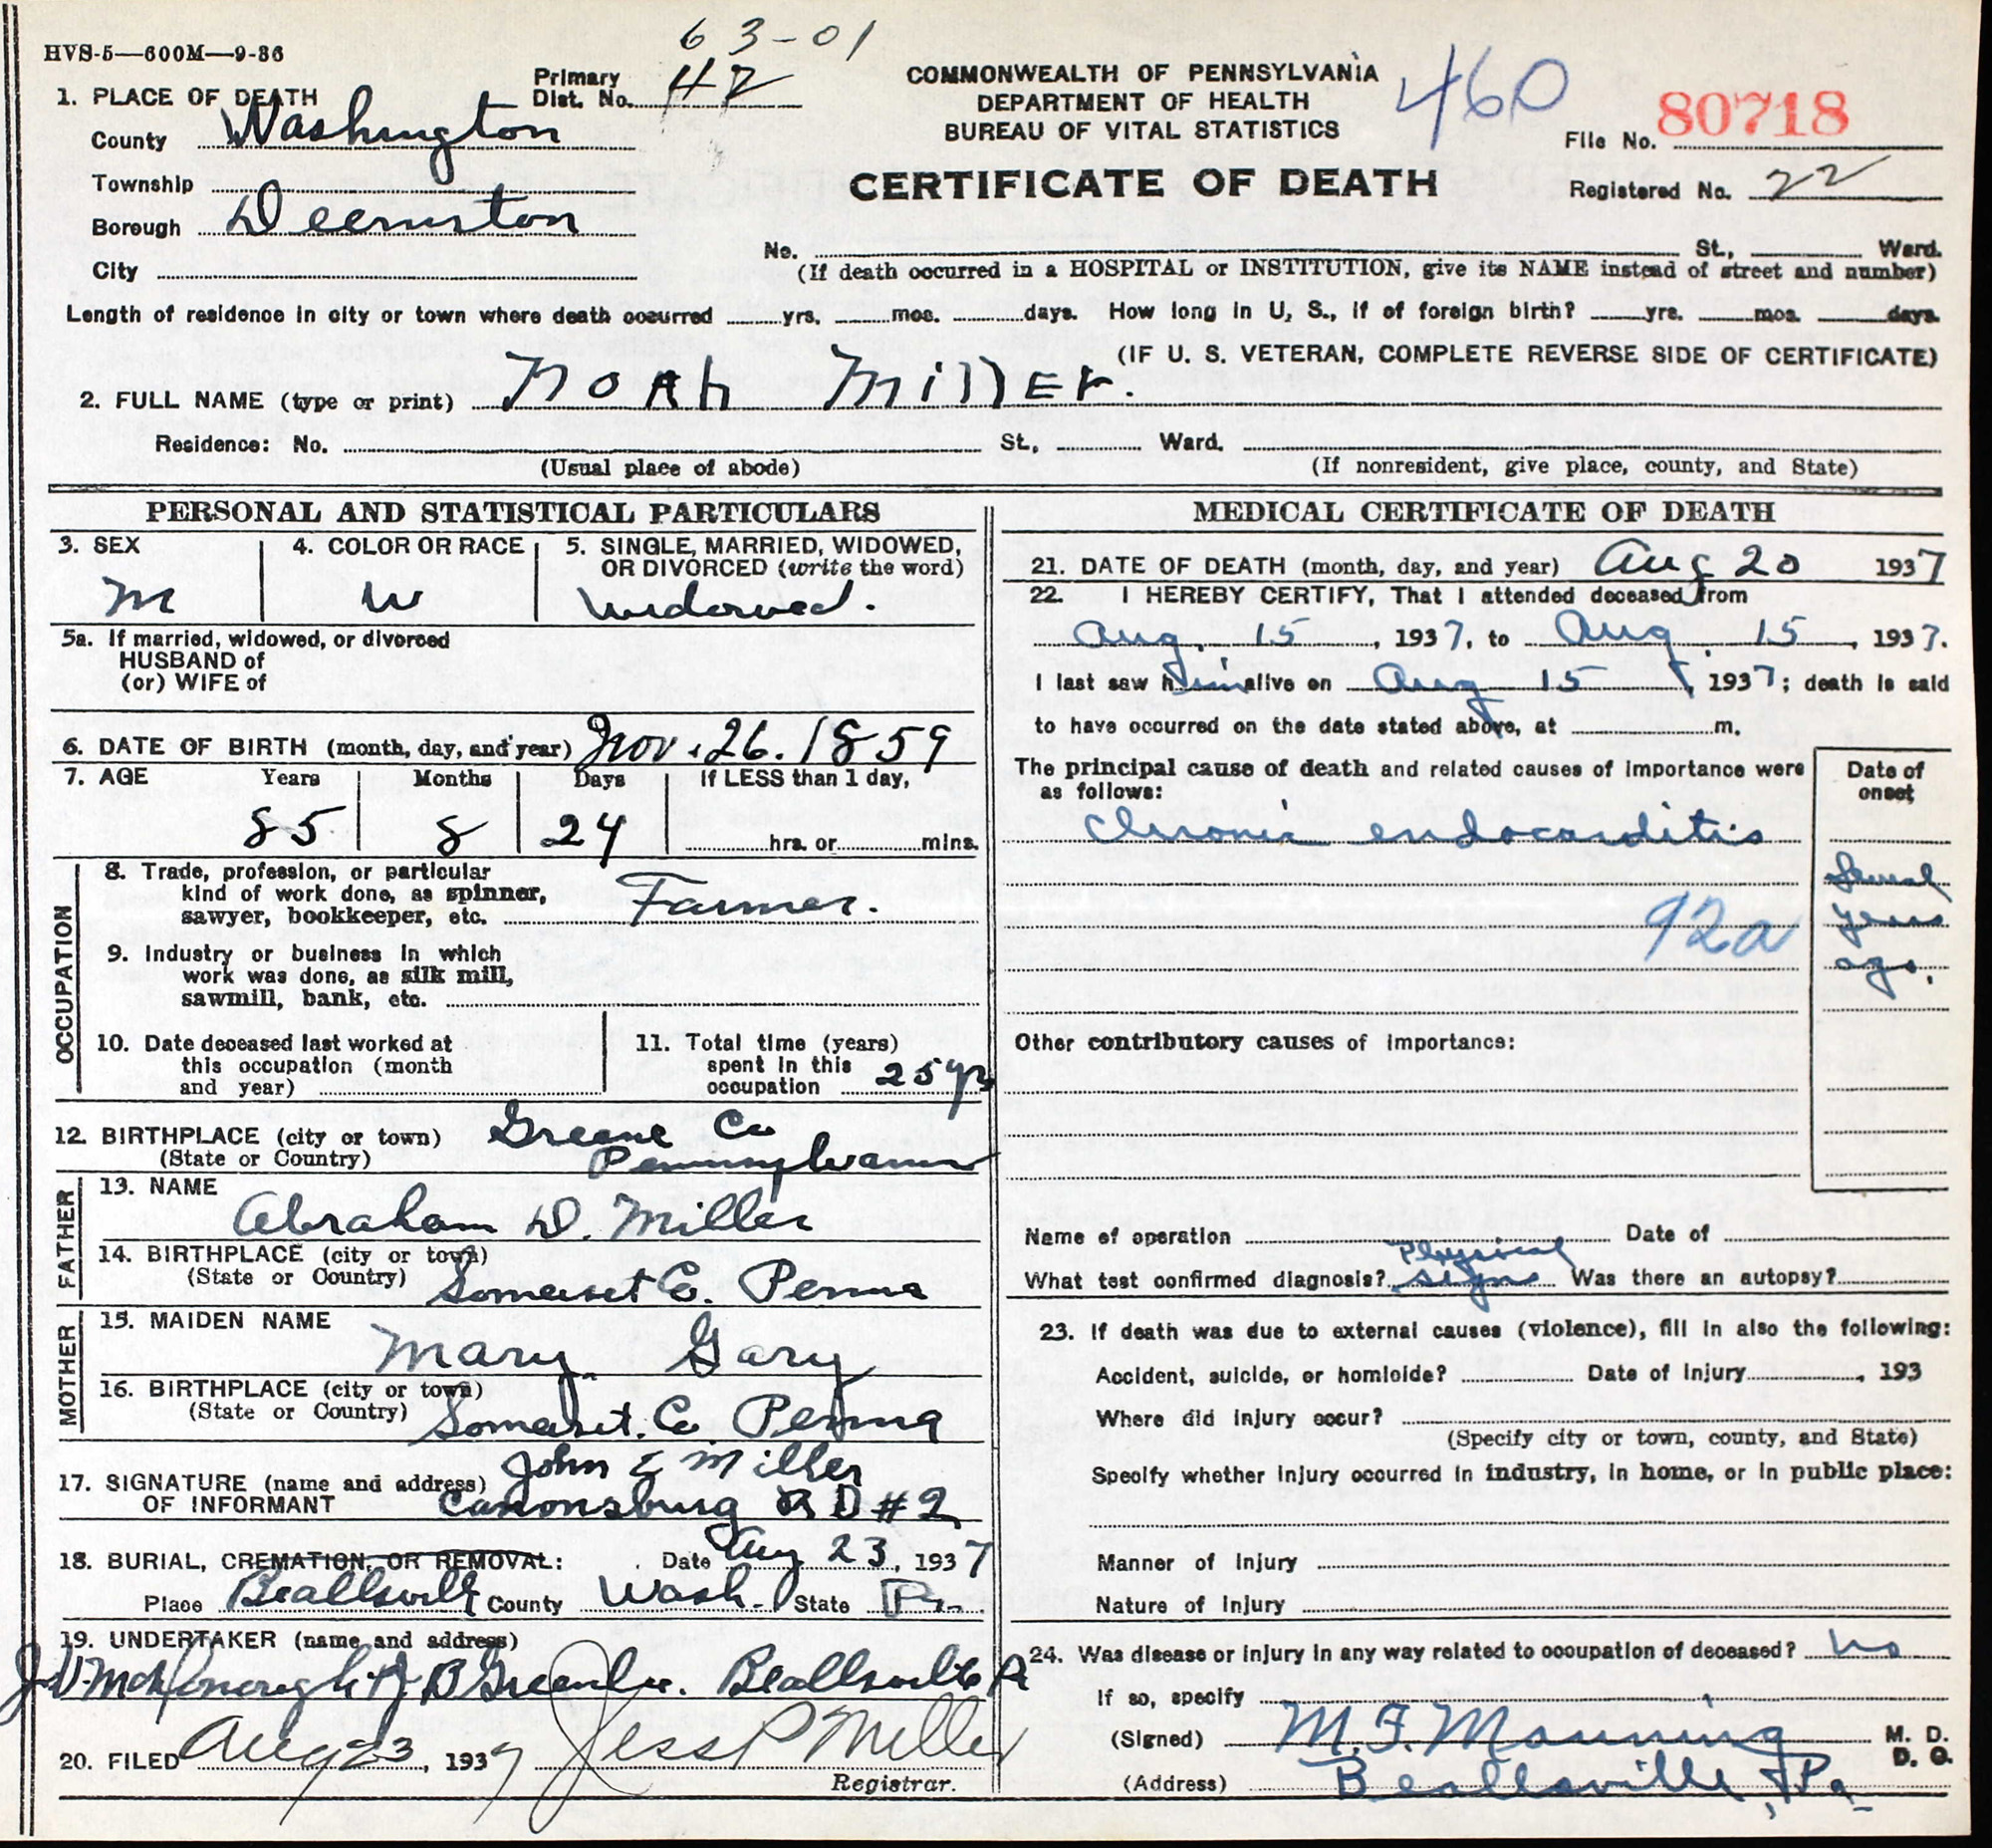 HVS-5—600M—9-36
63-01
1. PLACE OF DEATH
Primary Dist. No. 42
COMMONWEALTH OF PENNSYLVANIA
DEPARTMENT OF HEALTH
BUREAU OF VITAL STATISTICS
460
File No. 80718
County Washington
Township
CERTIFICATE OF DEATH
Registered No. 22
Borough Deemston
No. St., Ward.
City
(If death occurred in a HOSPITAL or INSTITUTION, give its NAME instead of street and number)
Length of residence in city or town where death occurred yrs. mos. days. How long in U. S., if of foreign birth? yrs. mos. days.
(IF U. S. VETERAN, COMPLETE REVERSE SIDE OF CERTIFICATE)
2. FULL NAME (type or print) Noah Miller.
Residence: No. St., Ward.
(Usual place of abode) (If nonresident, give place, county, and State)
PERSONAL AND STATISTICAL PARTICULARS
3. SEX
M
4. COLOR OR RACE
W
5. SINGLE, MARRIED, WIDOWED,
OR DIVORCED (write the word)
Widowed.
5a. If married, widowed, or divorced
HUSBAND of
(or) WIFE of
6. DATE OF BIRTH (month, day, and year) Nov. 26. 1859
7. AGE Years Months Days If LESS than 1 day,
85 8 24 hrs. or mins.
OCCUPATION
8. Trade, profession, or particular
kind of work done, as spinner,
sawyer, bookkeeper, etc. Farmer.
9. Industry or business in which
work was done, as silk mill,
sawmill, bank, etc.
10. Date deceased last worked at
this occupation (month
and year)
11. Total time (years)
spent in this
occupation 25 yrs
12. BIRTHPLACE (city or town) Greene Co
(State or Country) Pennsylvania
FATHER
13. NAME
Abraham D. Miller
14. BIRTHPLACE (city or town)
(State or Country) Somerset Co. Penna
MOTHER
15. MAIDEN NAME
Mary Gary
16. BIRTHPLACE (city or town)
(State or Country) Somerset. Co Penna
17. SIGNATURE (name and address) John E Miller
OF INFORMANT Canonsburg RD #2
18. BURIAL, CREMATION, OR REMOVAL: Date Aug 23, 1937
Place Beallsville County Wash. State Pa.
19. UNDERTAKER (name and address)
J.V. McDonough & J. B Greenlee. Beallsville Pa
20. FILED Aug 23, 1937 Jess P Miller
Registrar.
MEDICAL CERTIFICATE OF DEATH
21. DATE OF DEATH (month, day, and year) Aug 20 1937
22. I HEREBY CERTIFY, That I attended deceased from
Aug. 15, 1937, to Aug. 15, 1937.
I last saw him alive on Aug 15, 1937; death is said
to have occurred on the date stated above, at m.
The principal cause of death and related causes of importance were
as follows:
Date of
onset
Chronic endocarditis
Several
years
ago.
92a
Other contributory causes of importance:
Name of operation Date of
Physical
What test confirmed diagnosis? signs Was there an autopsy?
23. If death was due to external causes (violence), fill in also the following:
Accident, suicide, or homicide? Date of injury , 193
Where did injury occur?
(Specify city or town, county, and State)
Specify whether injury occurred in industry, in home, or in public place:
Manner of injury
Nature of injury
24. Was disease or injury in any way related to occupation of deceased? no
If so, specify
(Signed) M. F. Manning M. D.
D. O.
(Address) Beallsville, Pa.